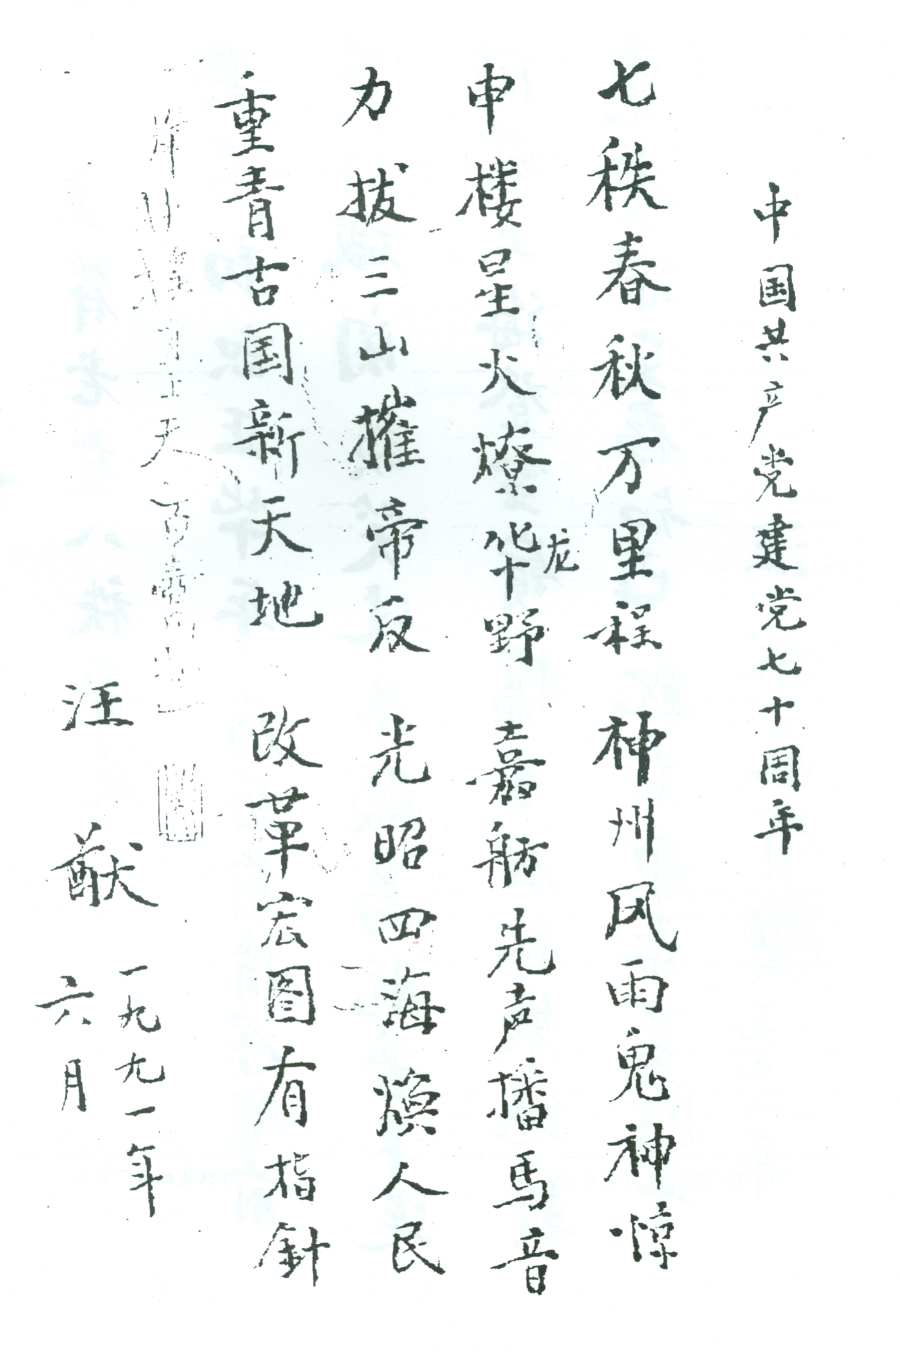 中国共产党建党七十周年
七秩春秋万里程 神州风雨鬼神惊
申楼星火燎华野 嘉舫先声播马音
龙
力拔三山摧帝反 光昭四海焕人民
重青古国新天地 改革宏图有指针
汪猷
一九九一年
六月